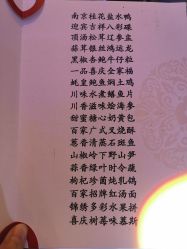 南京桂花盐水鸭
迎宾吉祥八彩碟
顶汤松茸辽参盅
蒜茸银丝鸿运龙
黑椒杏鲍牛仔粒
一品喜庆全家福
蚝皇鲍鱼焖土鸡
川味水煮鳝片
川香滋味烩海参
甜蜜糖心奶黄包
百家广式叉烧酥
葱香清蒸石斑鱼
山椒岭下野山笋
蒜香绿叶时令蔬
枸杞珍菌炖乳鸽
百家招牌红豆粥
锦绣多彩水果拼
喜庆树莓味慕斯